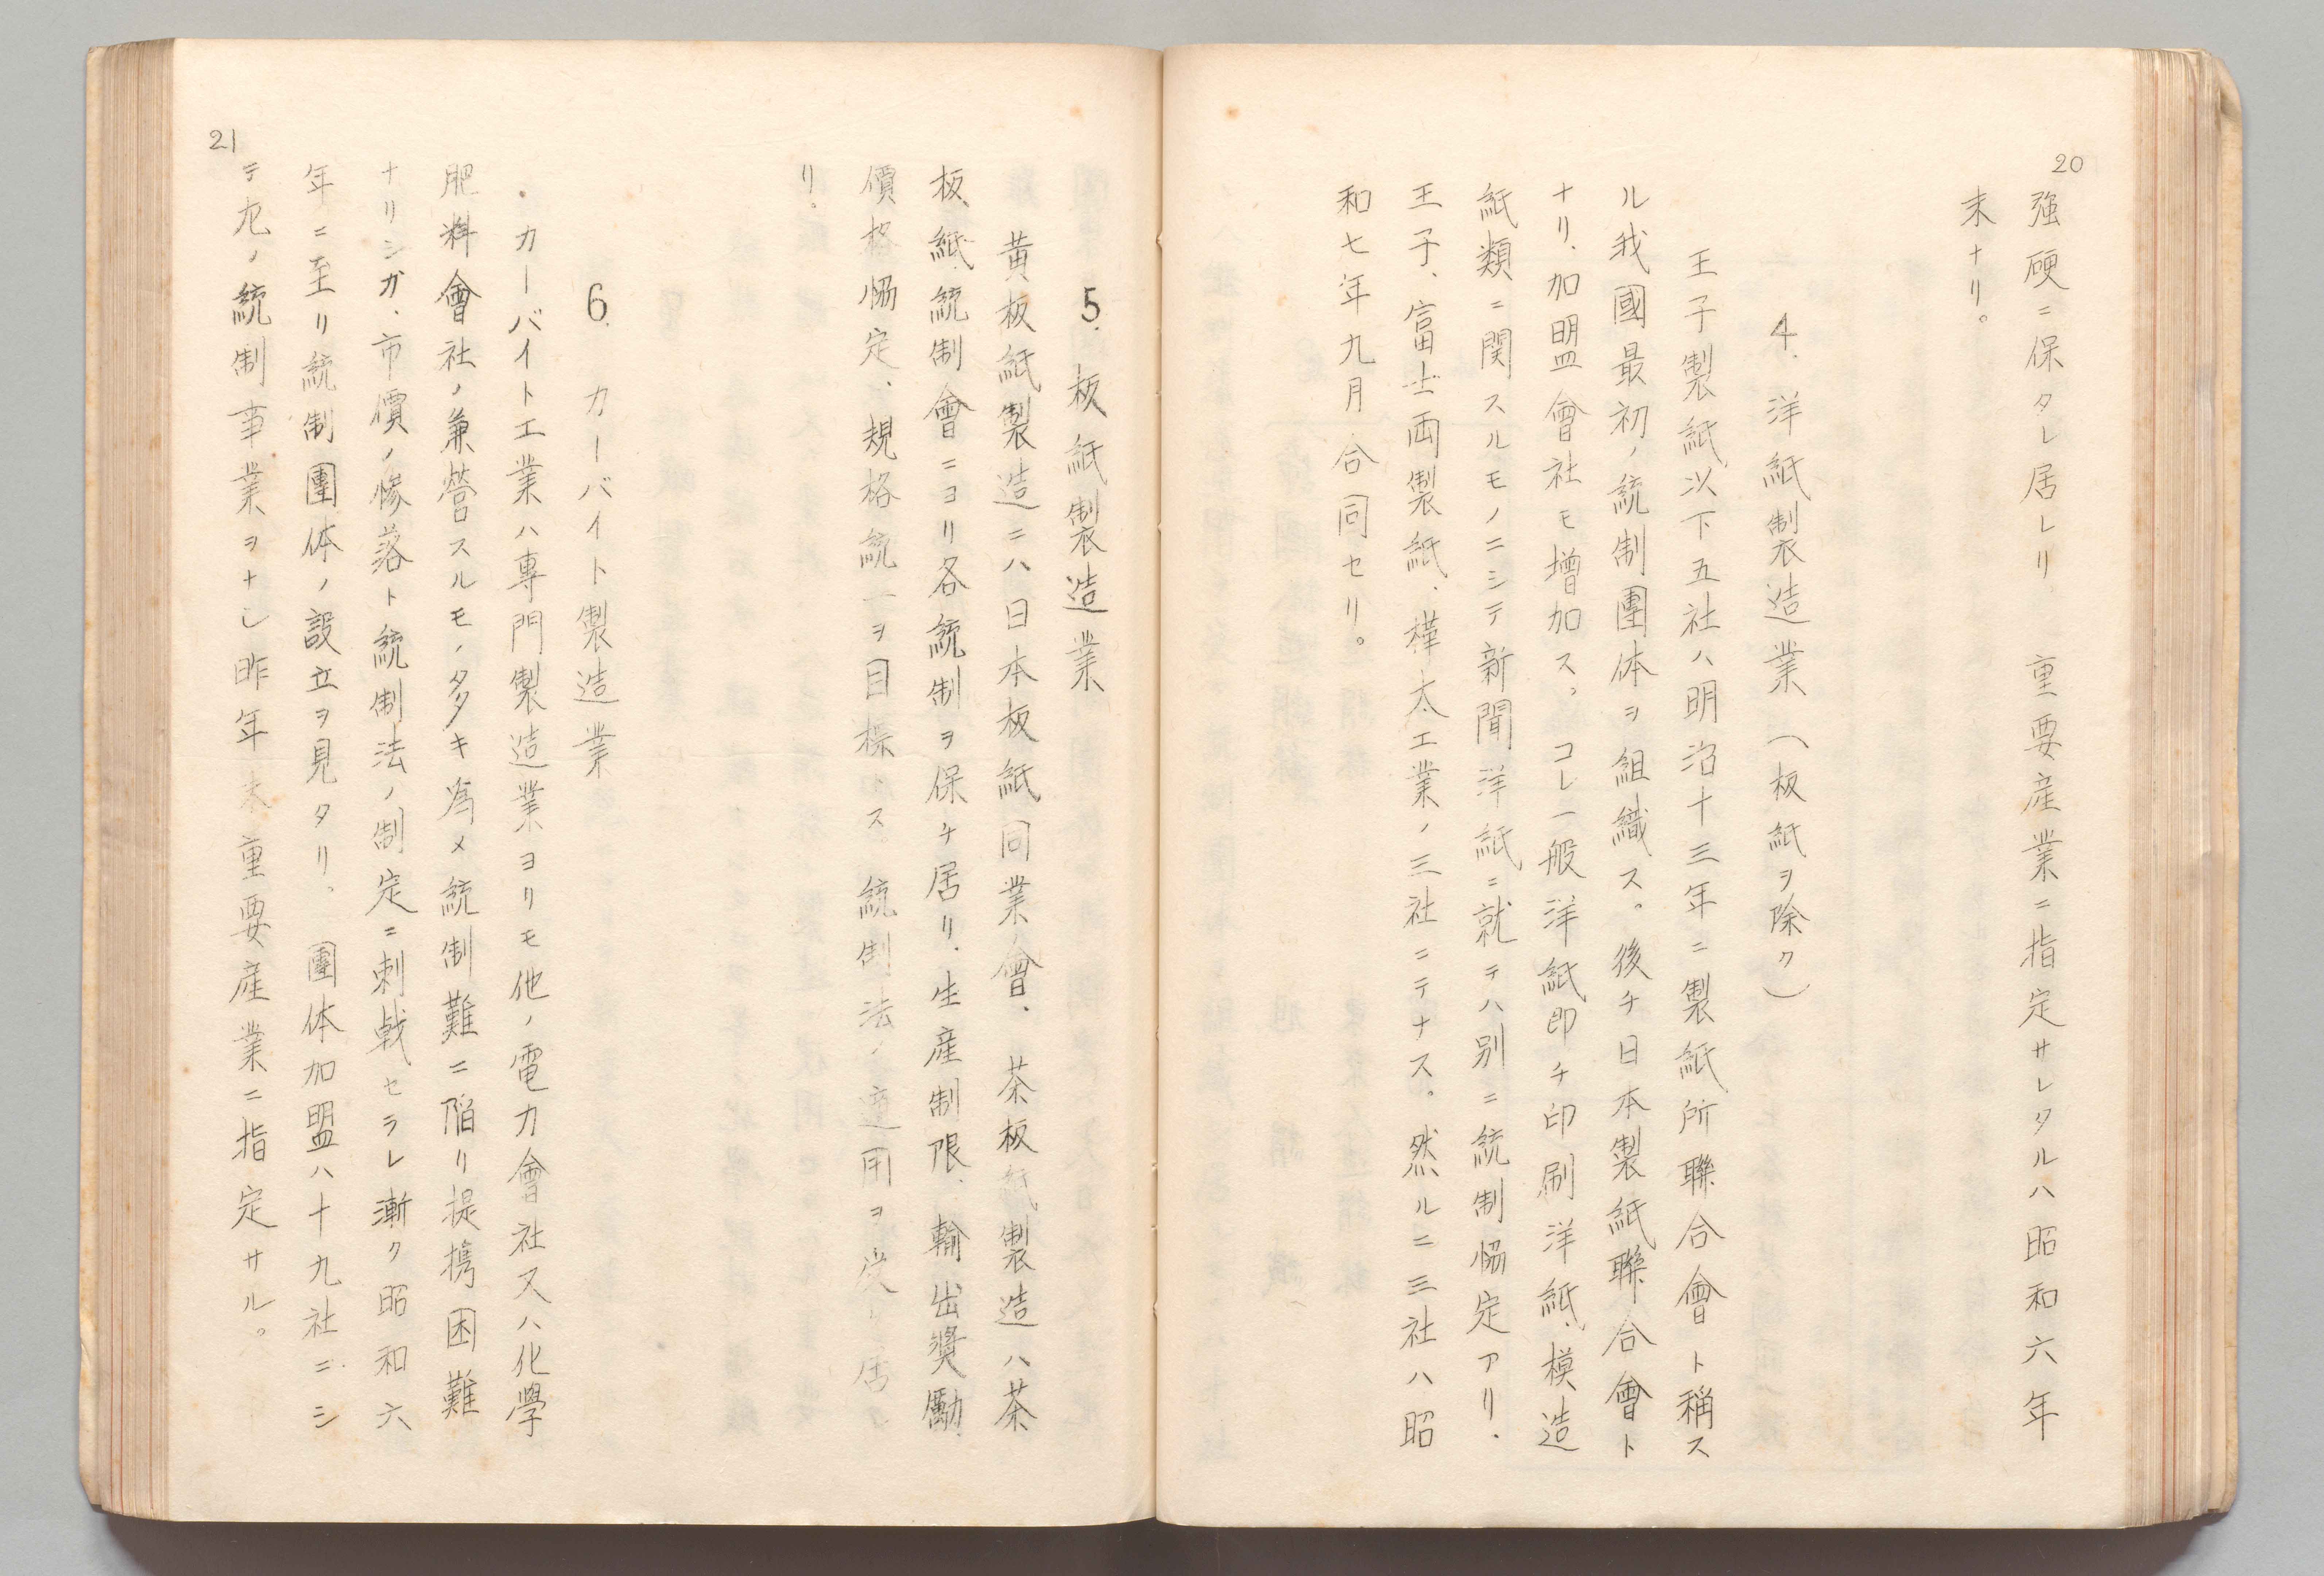 20
強硬ニ保タレ居レリ 重要産業ニ指定サレタルハ昭和六年
末ナリ。
4. 洋紙製造業(板紙ヲ除ク)
王子製紙以下五社ハ明治十三年ニ製紙所聯合會ト稱ス
ル我國最初ノ統制團体ヲ組織ス。後チ日本製紙聯合會ト
ナリ、加盟會社モ増加ス。コレ一般洋紙卽チ印刷洋紙、模造
紙類ニ関スルモノニシテ新聞洋紙ニ就テハ別ニ統制協定アリ、
王子、富士両製紙、樺太工業ノ三社ニテナス。然ルニ三社ハ昭
和七年九月合同セリ。
5. 板紙製造業
黄板紙製造ニハ日本板紙同業會、茶板紙製造ハ茶
板紙統制會ニヨリ各統制ヲ保チ居リ、生産制限、輸出奨勵、
價格協定、規格統一ヲ目標トス。統制法ノ適用ヲ受ケ居レ
リ。
6. カーバイト製造業
カーバイト工業ハ專門製造業ヨリモ他ノ電力會社又ハ化學
肥料會社ノ兼營スルモノ多キ為メ統制難ニ陥リ提携困難
ナリシガ、市價ノ惨落ト統制法ノ制定ニ刺戟セラレ漸ク昭和六
年ニ至リ統制團体ノ設立ヲ見タリ。 團体加盟ハ十九社ニシ
テ凡ノ統制事業ヲナシ昨年末重要産業ニ指定サル。
21